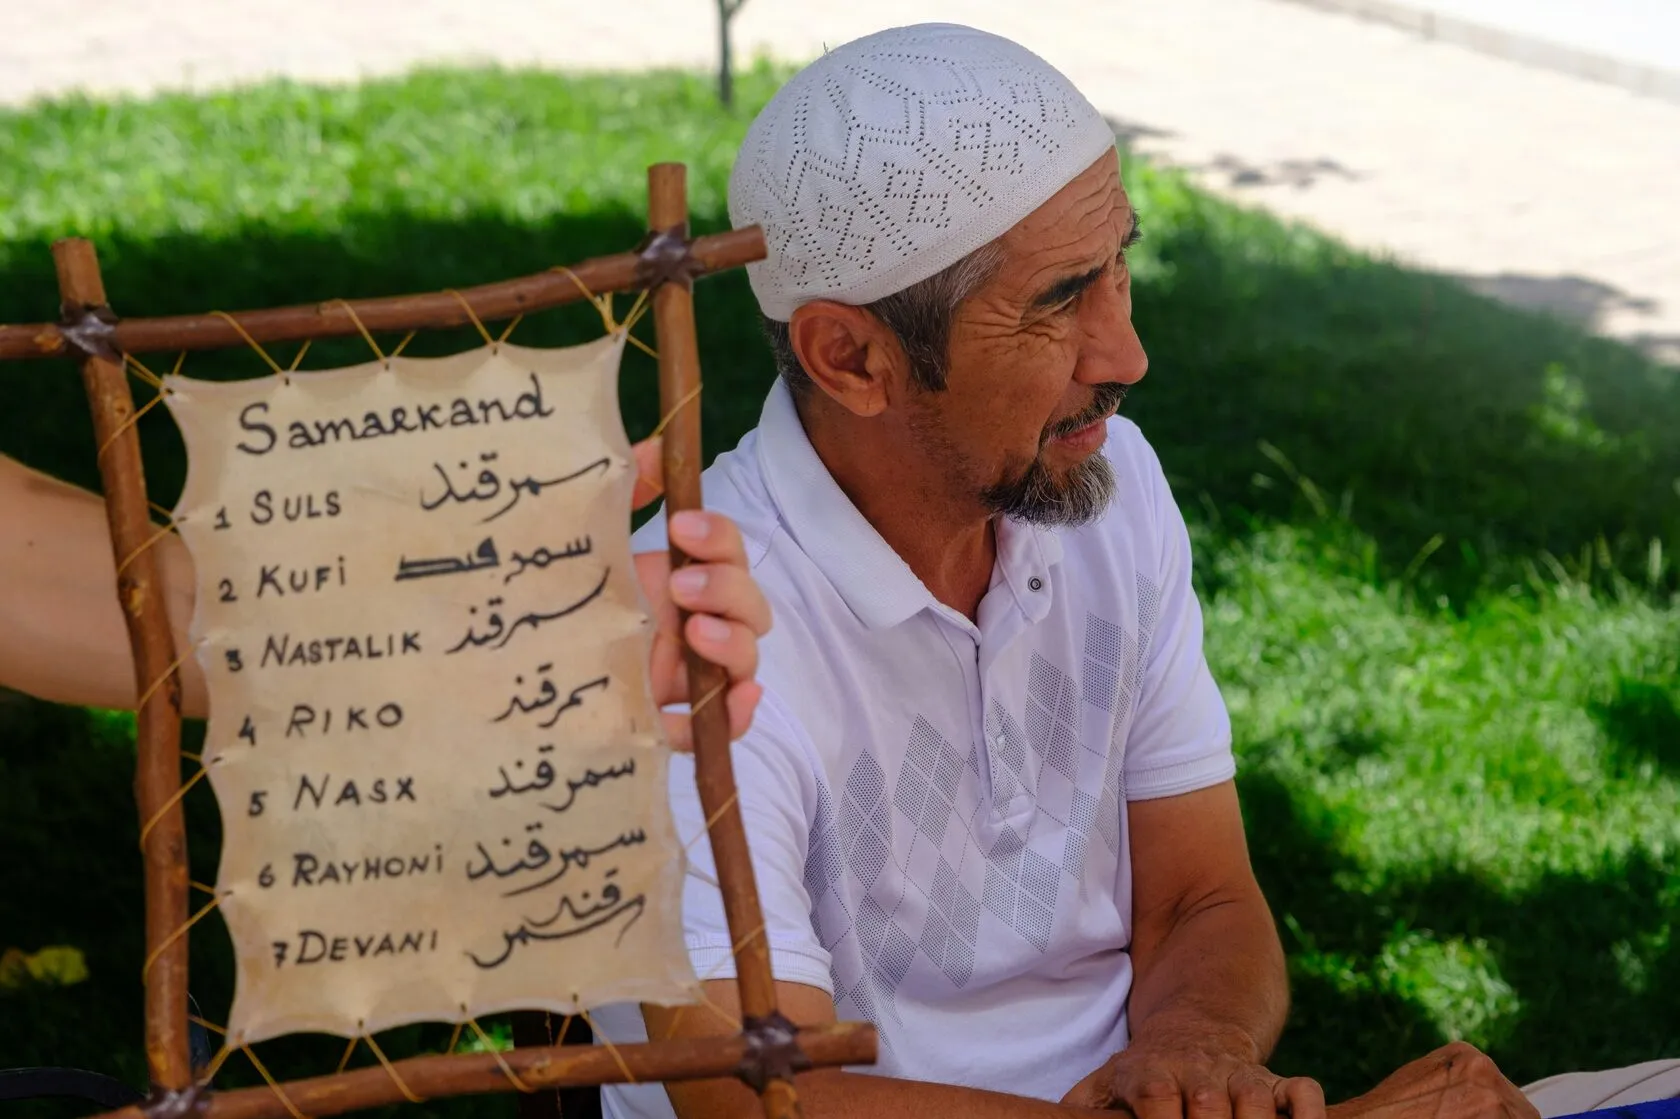 Samarkand
1 SULS سمرقند
2 KUFi سمرقند
3 NASTALIK سمرقند
4 RIKO سمرقند
5 NASX سمرقند
6 RAYHONi سمرقند
7 DEVANI سمرقند